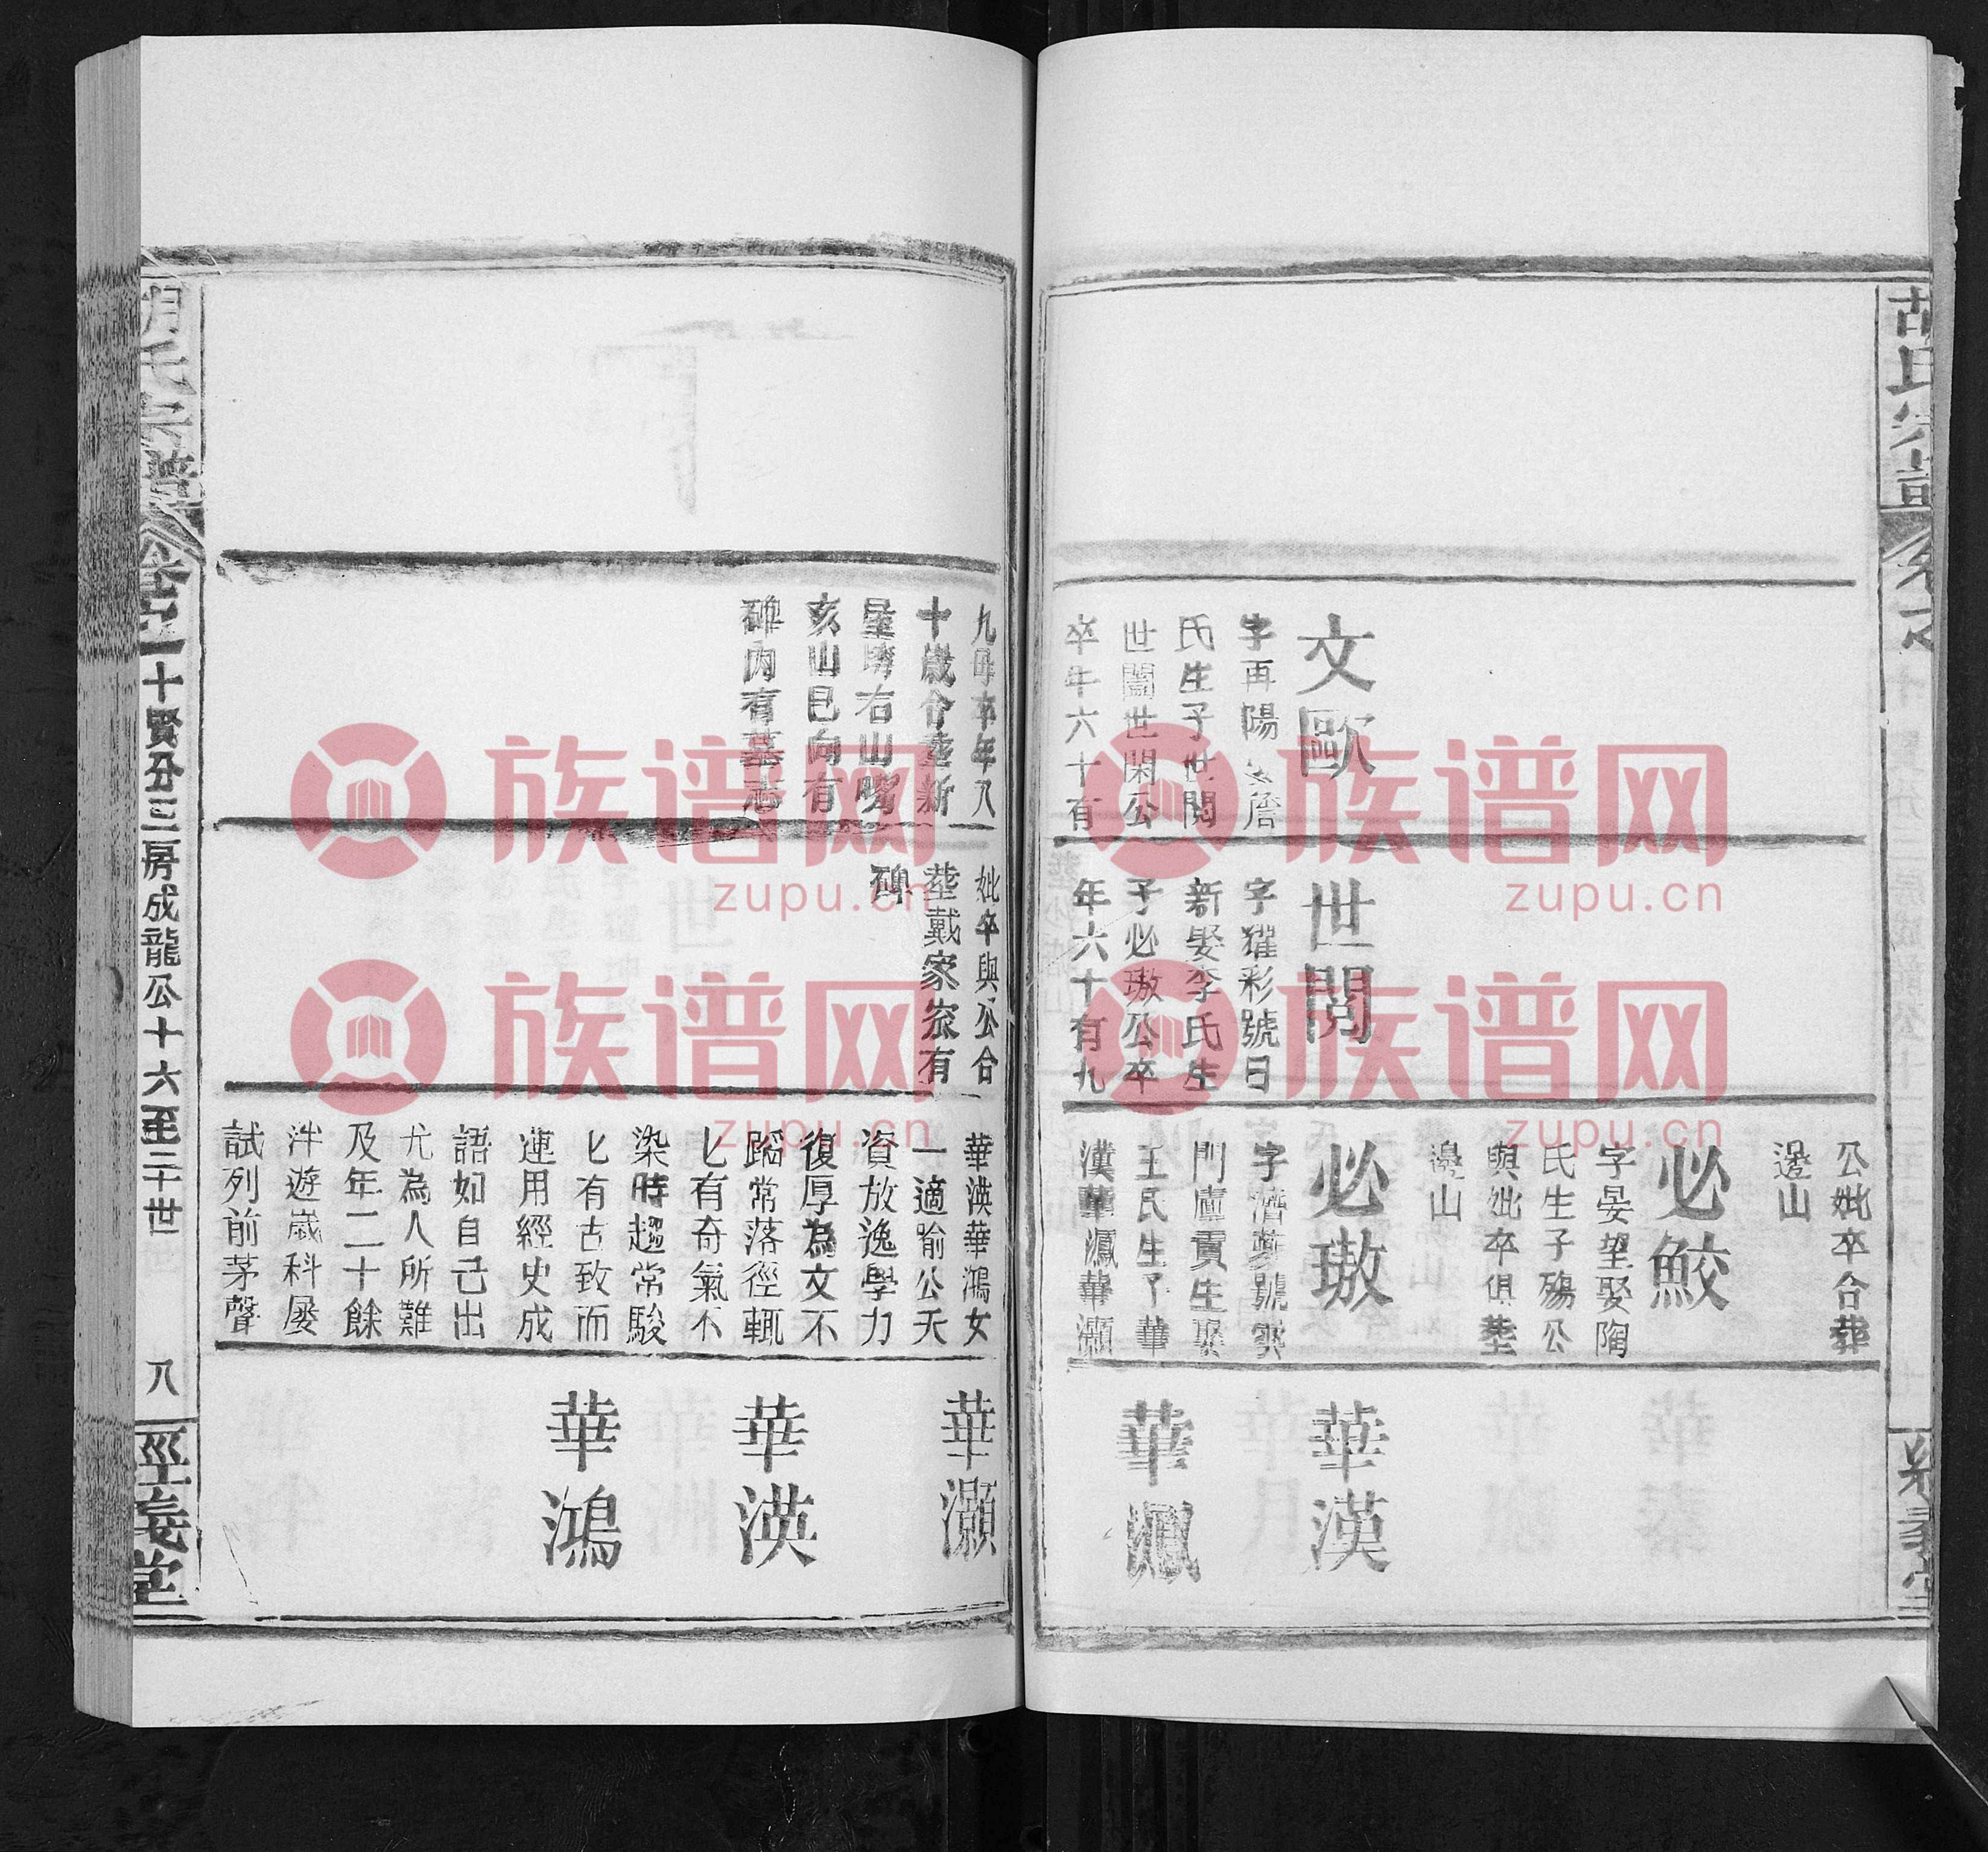 公妣卒合葬
邊山
文歐
字再陽 娶詹
氏生子世閱
世闓世閑公
卒年六十有
世閱
字㹊彩號日
新娶李氏生
子必璈公卒
年六十有九
必鮫
字晏望娶陶
氏生子殤公
與妣卒俱塟
邊山
必璈
字濟
門庫貢生娶
王氏生子華
漢華瀜華灝
華漢
華瀜
九
卒年八
十歲合塟新
右山嘴
亥山巳向有
碑內有墓志
妣卒與公合
塟戴家
有
碑
華渶華鴻女
一適喻公天
資放逸學力
復厚為文不
蹈常落徑輒
匕有奇氣不
染時趨常駿
匕有古致而
運用經史成
語如自己出
尤為人所難
及年二十餘
泮遊嵗科屢
試列前茅聲
華灝
華渶
華鴻
胡氏宗譜
十賢分三房成龍公十六至二十世
八
經義堂
族谱网
zupu.cn
族谱网
zupu.cn
族谱网
zupu.cn
族谱网
zupu.cn